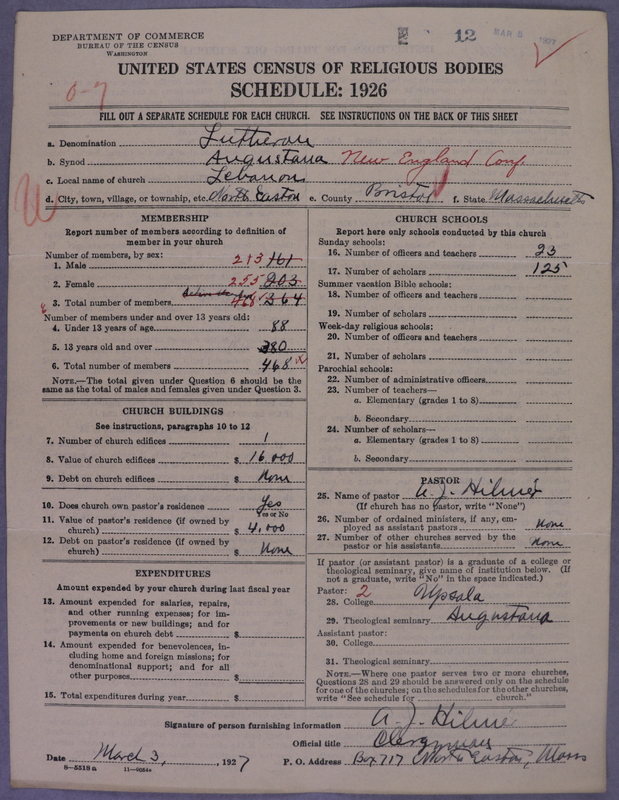 DEPARTMENT OF COMMERCE
BUREAU OF THE CENSUS
WASHINGTON
12
MAR 5 1927
UNITED STATES CENSUS OF RELIGIOUS BODIES
SCHEDULE: 1926
0-7
FILL OUT A SEPARATE SCHEDULE FOR EACH CHURCH. SEE INSTRUCTIONS ON THE BACK OF THIS SHEET
a. Denomination Lutheran
b. Synod Augustana New England Conf.
c. Local name of church Lebanon
d. City, town, village, or township, etc. North Easton e. County Bristol f. State Massachusetts
MEMBERSHIP
Report number of members according to definition of
member in your church
Number of members, by sex:
1. Male 213 161
2. Female 255 203
3. Total number of members 468 364
Number of members under and over 13 years old:
4. Under 13 years of age 88
5. 13 years old and over 380
6. Total number of members 468
NOTE.—The total given under Question 6 should be
the same as the total of males and females given under Question 3.
CHURCH BUILDINGS
See instructions, paragraphs 10 to 12
7. Number of church edifices 1
8. Value of church edifices $ 16.000
9. Debt on church edifices $ None
10. Does church own pastor's residence Yes
Yes or No
11. Value of pastor's residence (if owned by
church) $ 4.000
12. Debt on pastor's residence (if owned by
church) $ None
EXPENDITURES
Amount expended by your church during last fiscal year
13. Amount expended for salaries, repairs,
and other running expense; for im-
provements or new buildings; and for
payments on church debt $
14. Amount expended for benevolences, in-
cluding home and foreign missions; for
denominational support; and for all
other purposes $
15. Total expenditures during year $
CHURCH SCHOOLS
Report here only schools conducted by this church
Sunday schools:
16. Number of officers and teachers 23
17. Number of scholars 125
Summer vacation Bible schools:
18. Number of officers and teachers
19. Number of scholars
Week-day religious schools:
20. Number of officers and teachers
21. Number of scholars
Parochial schools:
22. Number of administrative officers
23. Number of teachers—
a. Elementary (grades 1 to 8)
b. Secondary
24. Number of scholars—
a. Elementary (grades 1 to 8)
b. Secondary
PASTOR
25. Name of pastor A. J. Hilmer
(If church has no pastor, write "None")
26. Number of ordained ministers, if any, em-
ployed as assistant pastors None
27. Number of other churches served by the
pastor or his assistants None
If pastor (or assistant pastor) is a graduate of a college or
theological seminary, give name of institution below. (If
not a graduate, write "No" in the space indicated.)
Pastor: 2
28. College Upsala
29. Theological seminary Augustana
Assistant pastor:
30. College
31. Theological seminary
NOTE.—Where one pastor serves two or more churches,
Questions 28 and 29 should be answered only on the schedule
for one of the churches; on the schedules for the other churches,
write "See schedule for church."
Signature of person furnishing information A. J. Hilmer
Official title Clergyman
Date March 3, 1927 P. O. Address Box 717 North Easton, Mass
8—5518a 11—9054